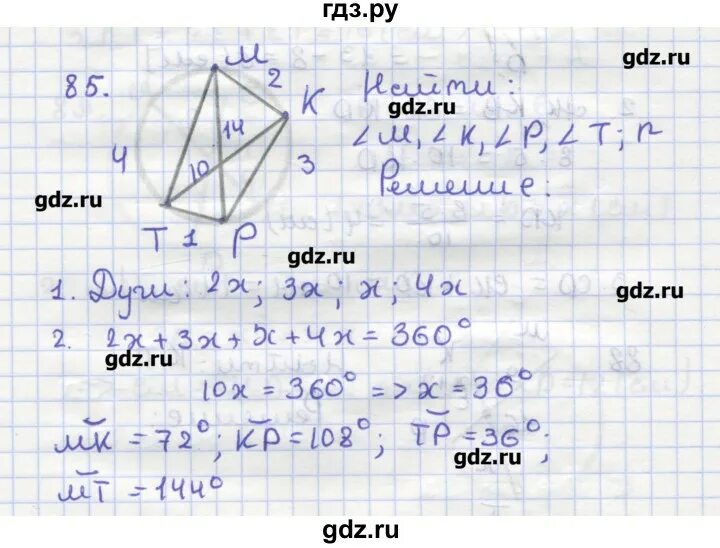 гдз.ру
85.
M
2
K
14
10
4
3
T 1 P
Найти:
∠M, ∠K, ∠P, ∠T; r
Решение:
gdz.ru
gdz.ru
gdz.ru
gdz.ru
1. Дуги: 2x; 3x; x; 4x
gdz.ru
2. 2x + 3x + x + 4x = 360°
gdz.ru
10x = 360° => x = 36°
MK = 72°; KP = 108°; TP = 36°;
gdz.ru
MT = 144°
gdz.ru